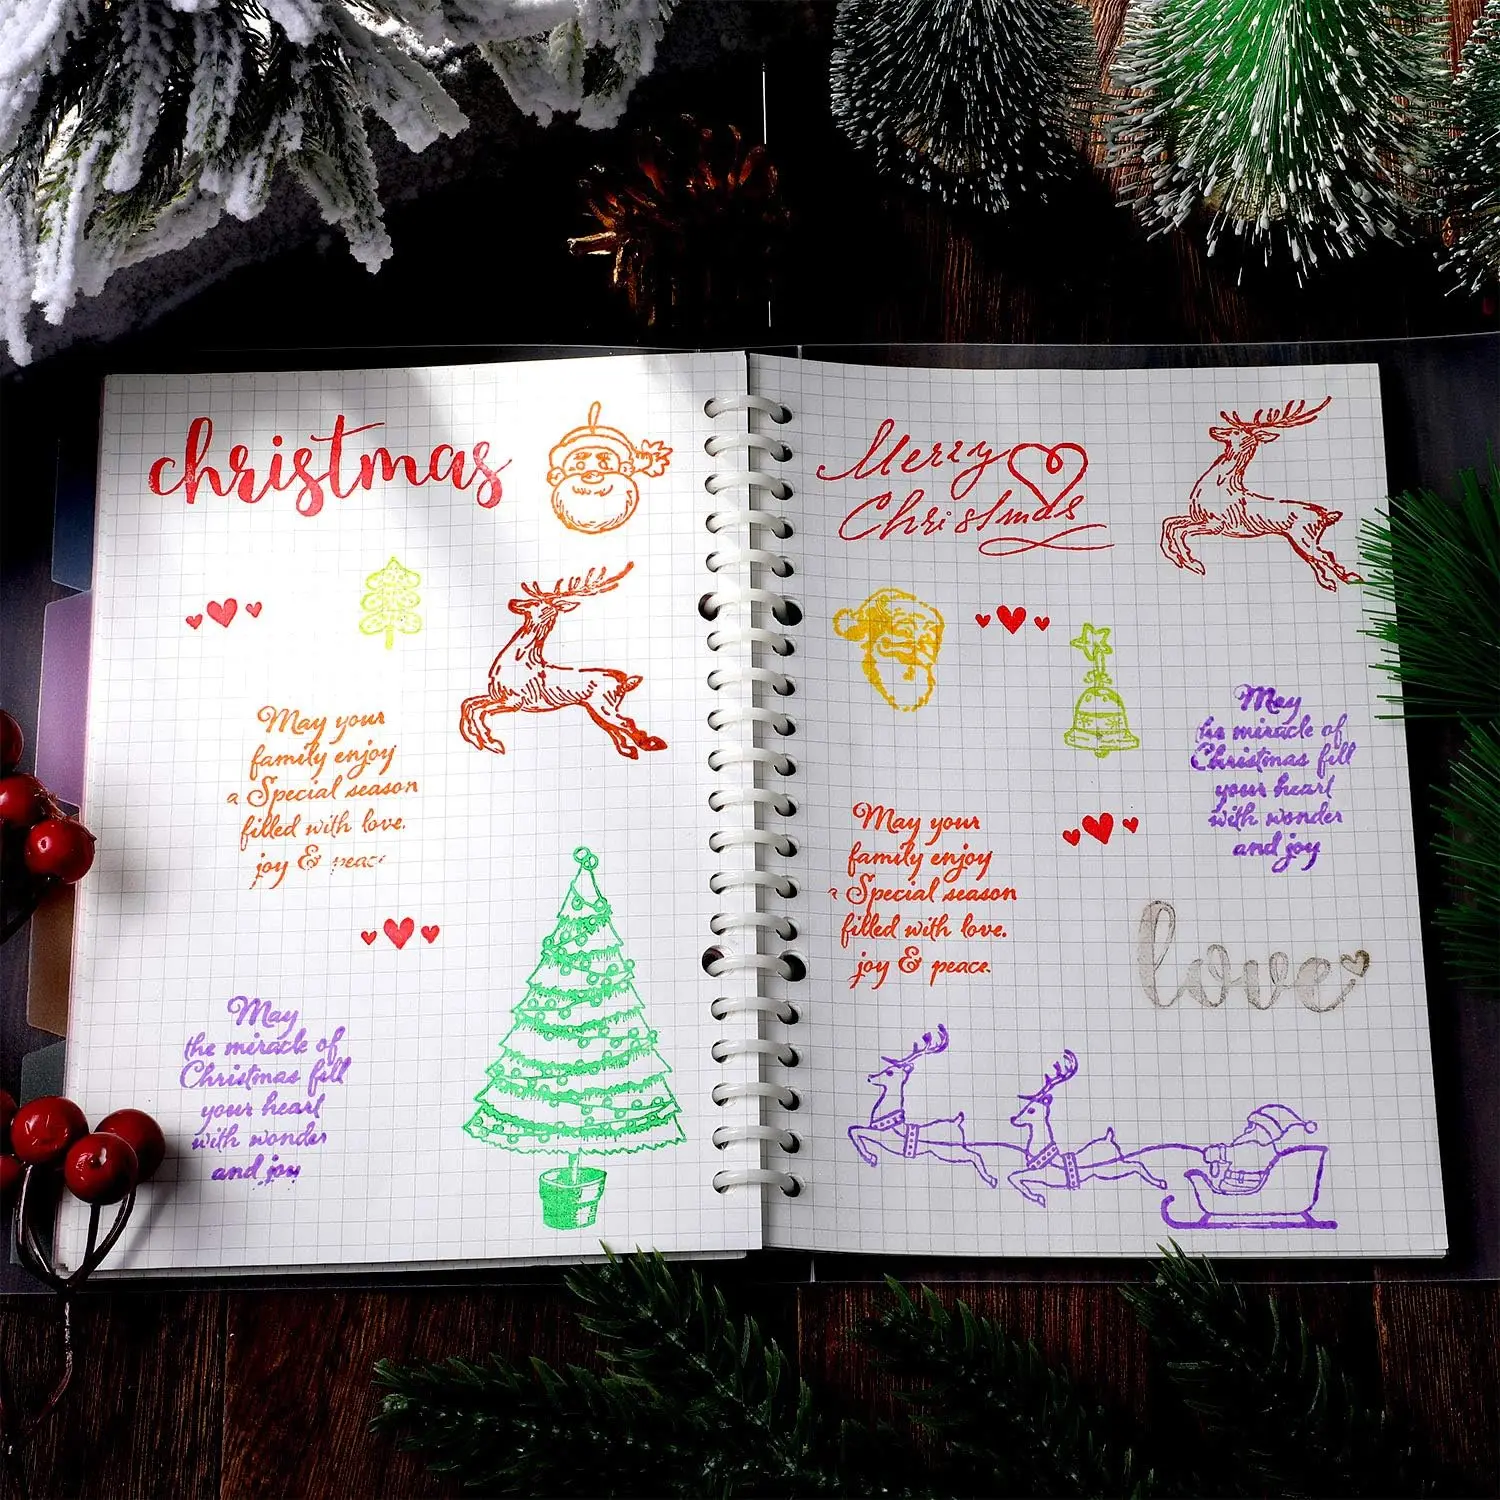 christmas
May your
family enjoy
a Special season
filled with love.
joy & peace
May
the miracle of
Christmas fill
your heart
with wonder
and joy
Merry
Christmas
May your
family enjoy
a Special season
filled with love.
joy & peace.
May
the miracle of
Christmas fill
your heart
with wonder
and joy
love